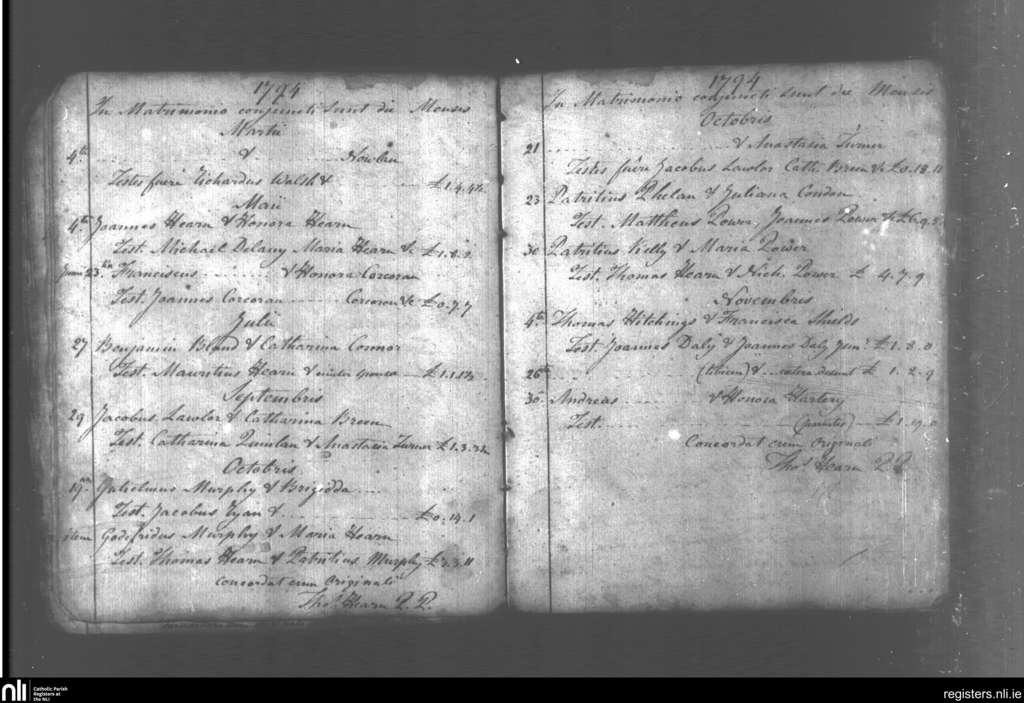 1794
In Matrimonio conjuncti sunt die Mensis
Martii
4th & Nowlan
Testes fuere Richardus Walsh & £1.4.4½
Maii
4th Joannes Hearn & Honora Hearn
Test. Michael Delany, Maria Hearn &c £1.8.2
Junii 23 Franciscus & Honora Corcoran
Test. Joannes Corcoran Corcoran &c £0.7.7
Julii
27 Benjamin Bland & Catharina Connor
Test. Mauritius Hearn & £1.1.1½
Septembris
29 Jacobus Lawlor & Catharina Breen
Test. Catharina Quinlan & Anastasia Turner £1.3.3½
Octobris
19 Gulielmus Murphy & Brigidda
Test. Jacobus Ryan & £0.14.1
item Godefridus Murphy & Maria Hearn
Test. Thomas Hearn & Patritius Murphy £3.3.11
Concordat cum Originali
Thos. Hearn P.P.
1794
In Matrimonio conjuncti sunt die Mensis
Octobris
21 & Anastasia Turner
Testes fuere Jacobus Lawlor Cath. Breen &c £0.18.11
23 Patritius Phelan & Juliana Condon
Test. Mattheus Power, Joannes Power &c £6.9.5
30 Patritius Kelly & Maria Power
Test. Thomas Hearn & Nich. Power £ 4.7.9
Novembris
4th Thomas Hitchings & Francisca Shields
Test. Joannes Daly & Joannes Daly Junr £1.8.0
26th & cetera desunt £ 1.2.9
30 Andreas & Honora Hartery
Test. £1.19.0
Concordat cum Originali
Thos. Hearn P.P.
nli
Catholic Parish
Registers at
the NLI
registers.nli.ie